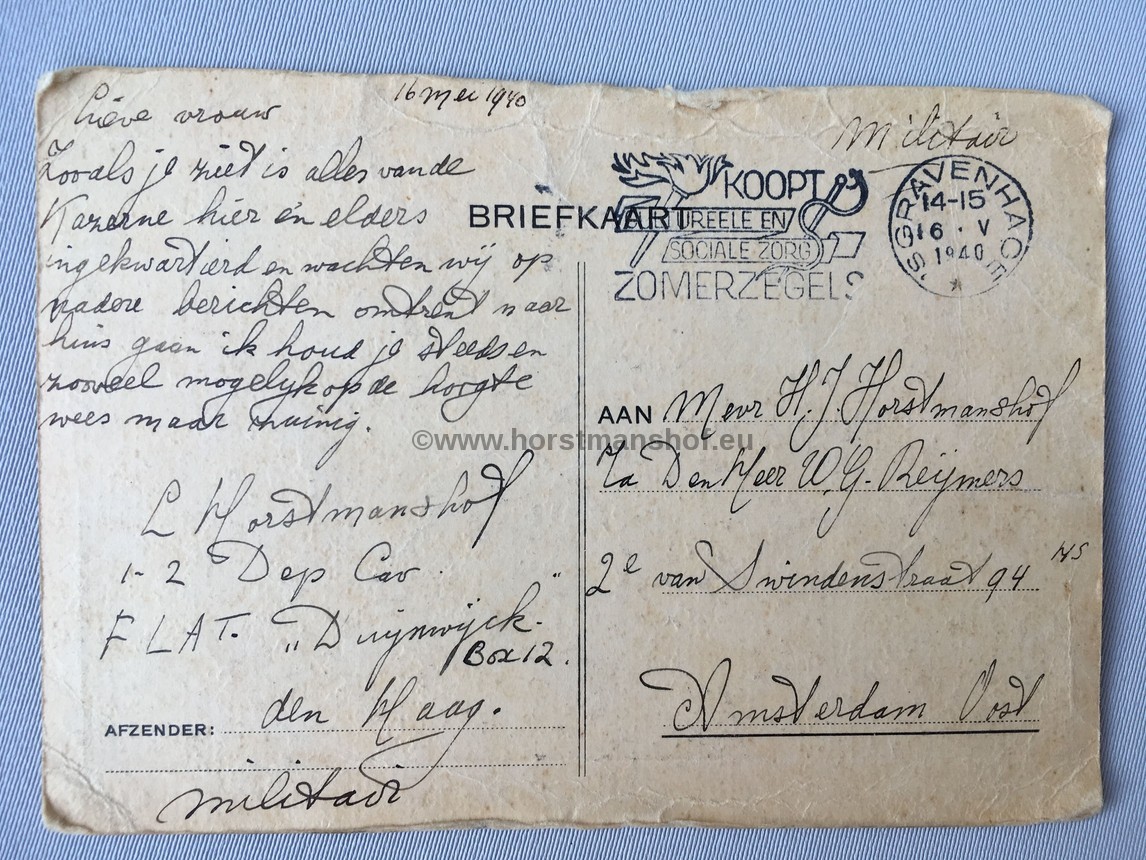 16 mei 1940
Lieve vrouw
Zooals je ziet is alles van de
Kazerne hier en elders
ingekwartierd en wachten wij op
nadere berichten omtrent naar
huis gaan ik houd je steeds en
zooveel mogelijk op de hoogte
wees maar zuinig.
L Horstmanshof
1-2 Dep Cav.
FLAT. „Duijnwijck."
Box 12.
den Haag.
AFZENDER:
militair
militair
BRIEFKAART
KOOPT
CULTUREELE EN
SOCIALE ZORG
ZOMERZEGELS
'S GRAVENHAGE
14-15
16 · V
1940
AAN Mevr H.J. Horstmanshof
Za Den Heer W.G. Reijmers
2e van Swindenstraat 94 hs
Amsterdam Oost
©www.horstmanshof.eu